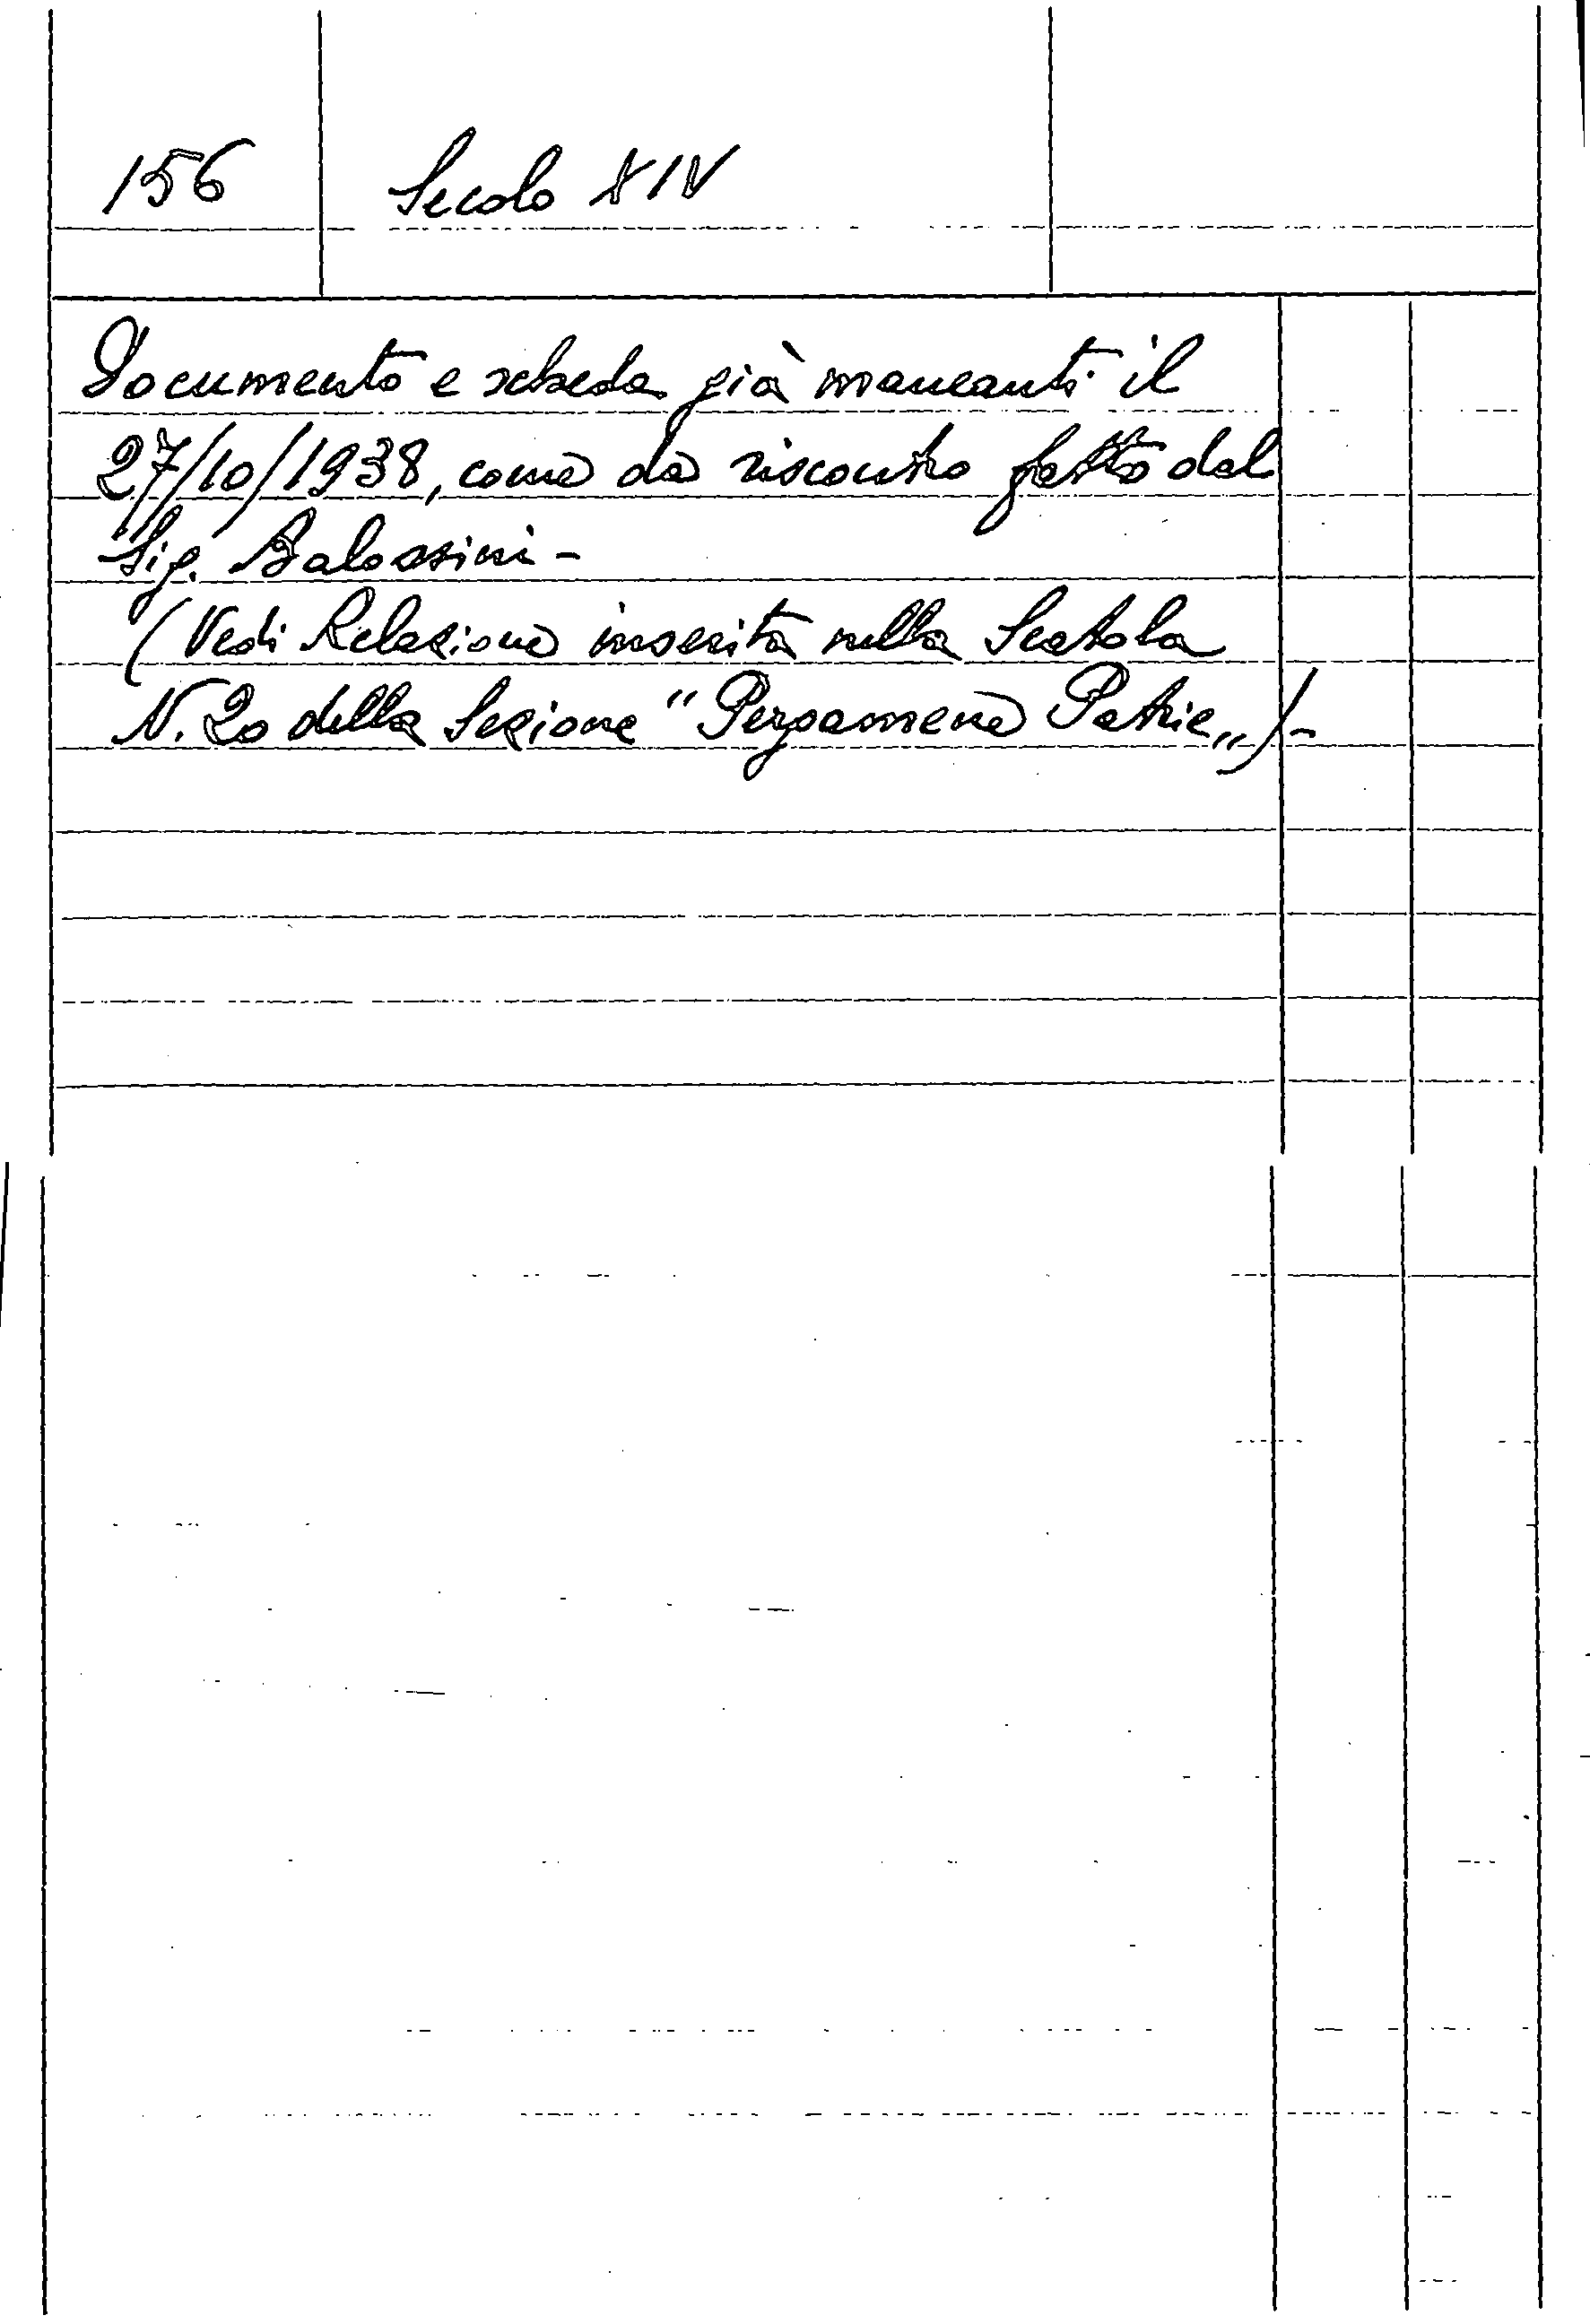 156 Secolo XIV
Documento e scheda già mancanti il
27/10/1938, come da riscontro fatto dal
Sig. Balossini -
(Vedi Relazione inserita nella Scatola
N. 20 della Sezione "Pergamene Patrie„)-